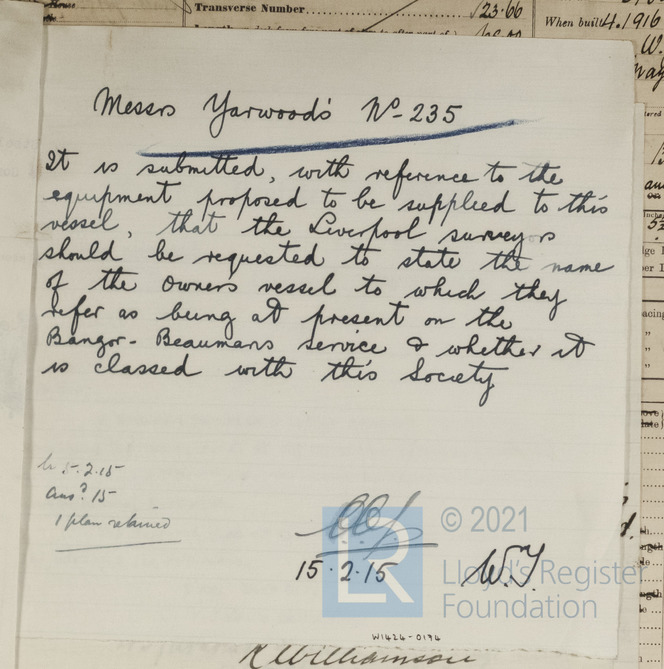 House
Transverse Number
123.66
When built 4.1916
W.
may
Messrs Yarwoods Nº- 235
It is submitted, with reference to the
equipment proposed to be supplied to this
vessel, that the Liverpool surveyors
should be requested to state the name
of the Owners vessel to which they
refer as being at present on the
Bangor-Beaumaris service & whether it
is classed with this Society
5.2.15
ansd 15
1 plan retained
15.2.15
W.J.
LR
© 2021
Lloyd's Register
Foundation
W1426-0194
R Williamson